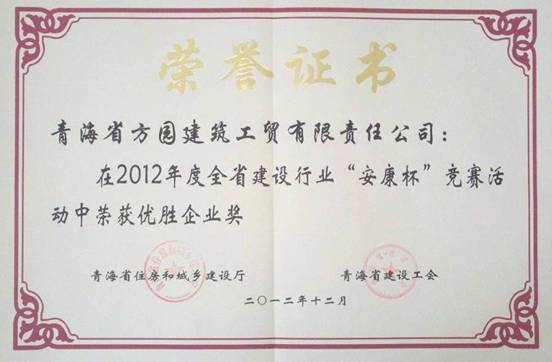 荣誉证书
青海省方园建筑工贸有限责任公司：
在2012年度全省建设行业“安康杯”竞赛活
动中荣获优胜企业奖
青海省住房和城乡建设厅 青海省建设工会
二〇一二年十二月